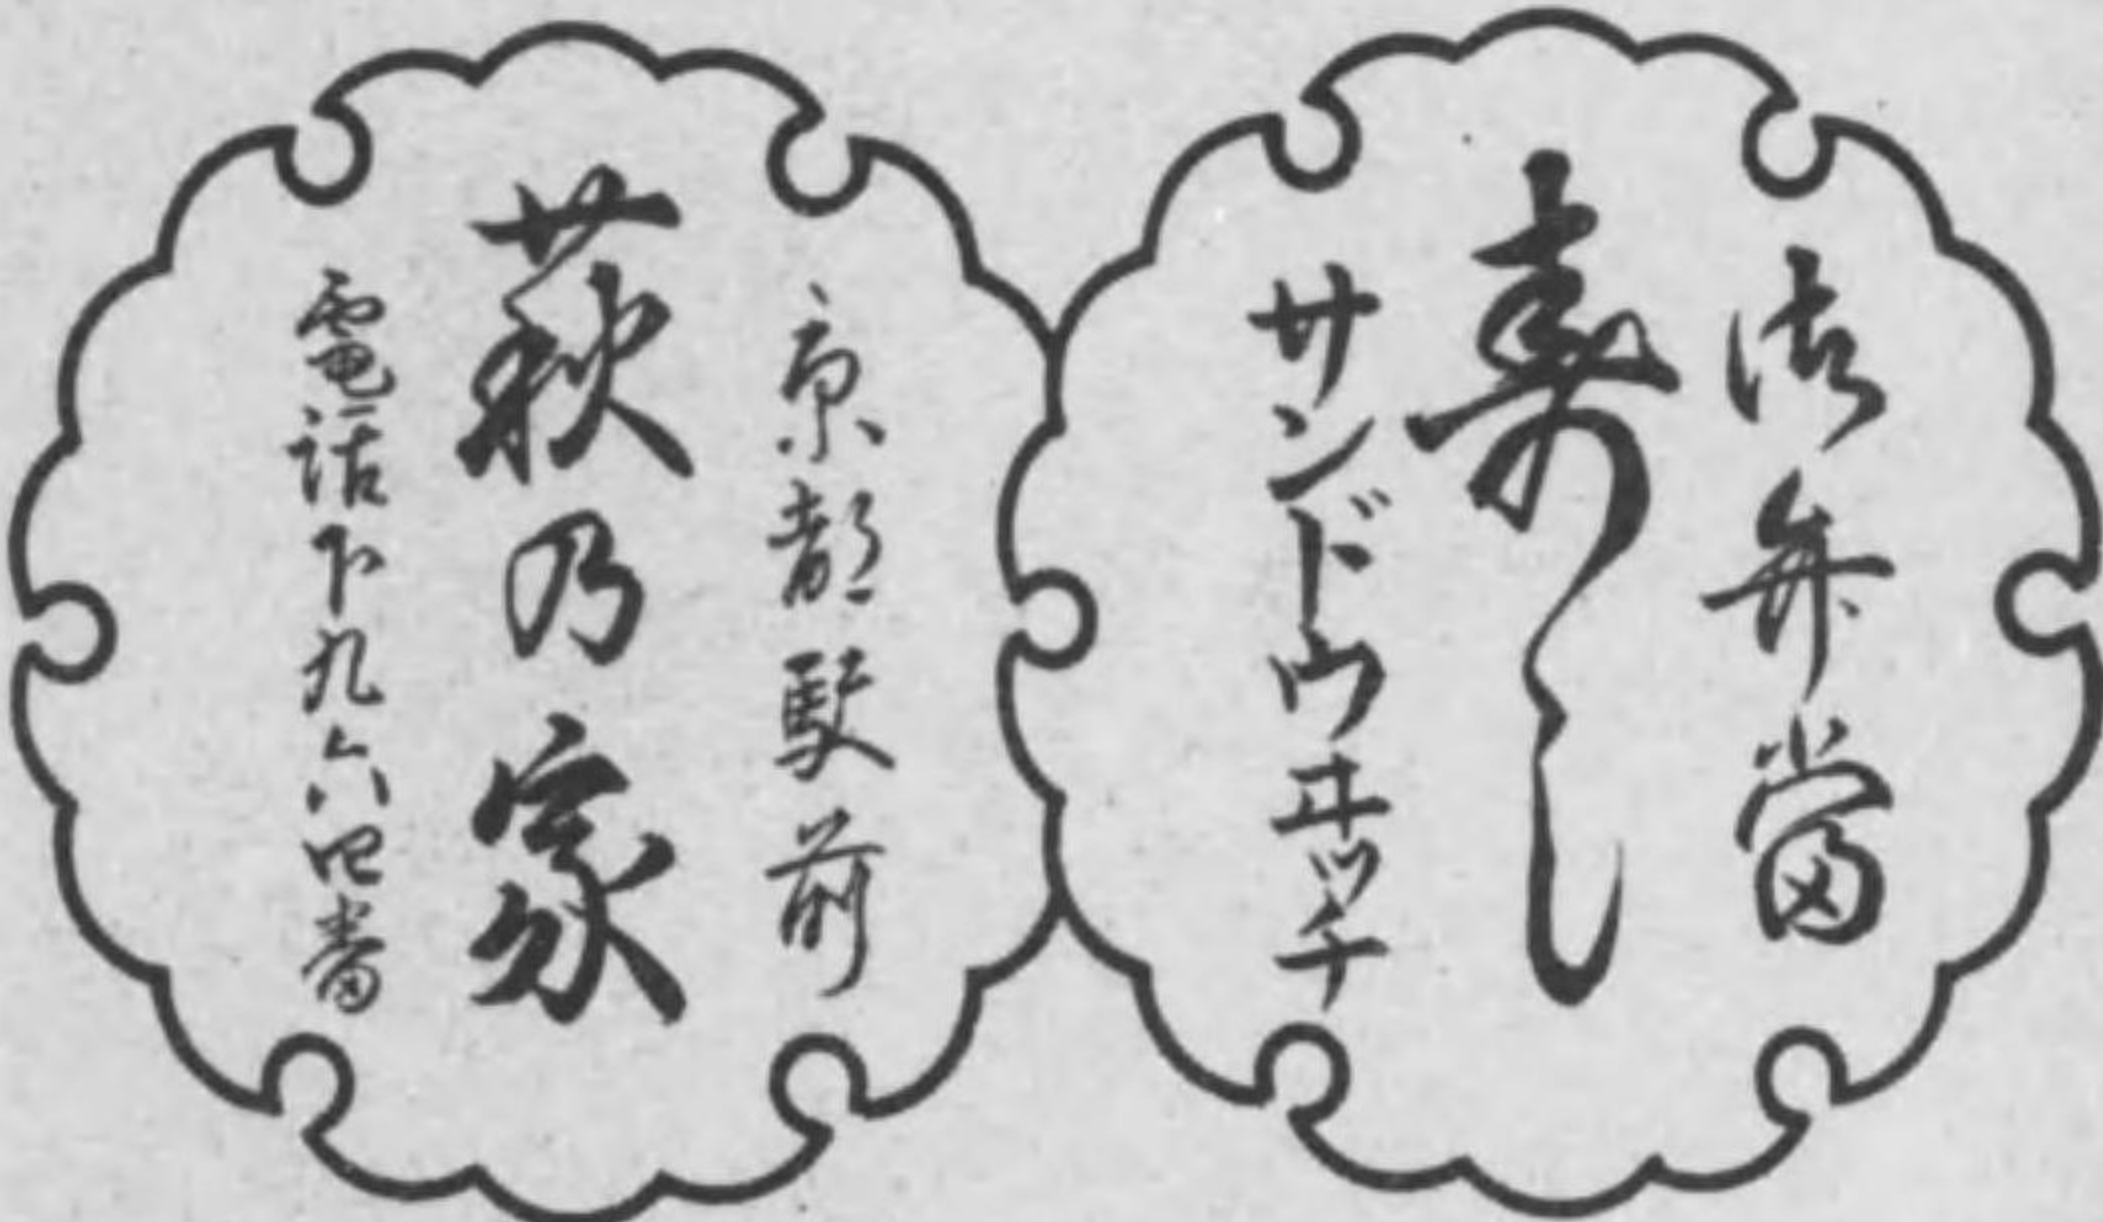 御弁當
寿し
サンドウヰッチ
京都駅前
萩乃家
電話下九六四番